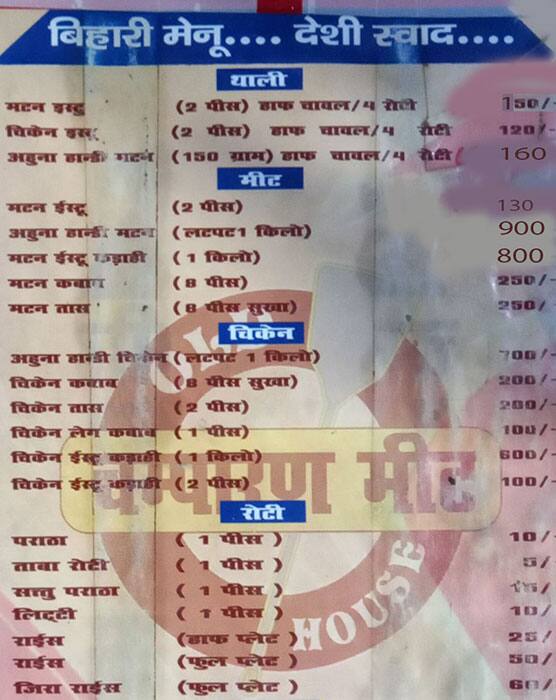 बिहारी मेनू.... देशी स्वाद....
थाली
मटन इस्टु (2 पीस) हाफ चावल/4 रोटी 150/-
चिकेन इस्टु (2 पीस) हाफ चावल/4 रोटी 120/-
अहुना हान्डी मटन (150 ग्राम) हाफ चावल/4 रोटी 160
मीट
मटन ईस्टू (2 पीस) 130
अहुना हान्डी मटन (लटपट1 किलो) 900
मटन ईस्टू कड़ाही (1 किलो) 800
मटन कबाब (8 पीस) 250/-
मटन तास (8 पीस सुखा) 250/-
चिकेन
अहुना हान्डी चिकेन (लटपट 1 किलो) 700/-
चिकेन कबाब (8 पीस सुखा) 200/-
चिकेन तास (2 पीस) 200/-
चिकेन लेग कबाब (1 पीस) 100/-
चिकेन ईस्टू कड़ाही (1 किलो) 600/-
चिकेन ईस्टू कड़ाही (2 पीस) 100/-
रोटी
पराठा (1 पीस) 10/-
ताबा रोटी (1 पीस) 5/
सत्तु पराठा (1 पीस) 15/
लिट्टी (1 पीस) 10/
राईस (हाफ प्लेट) 25/
राईस (फूल प्लेट) 50/
जिरा राईस (फूल प्लेट) 60/
OLD
चम्पारण मीट
HOUSE